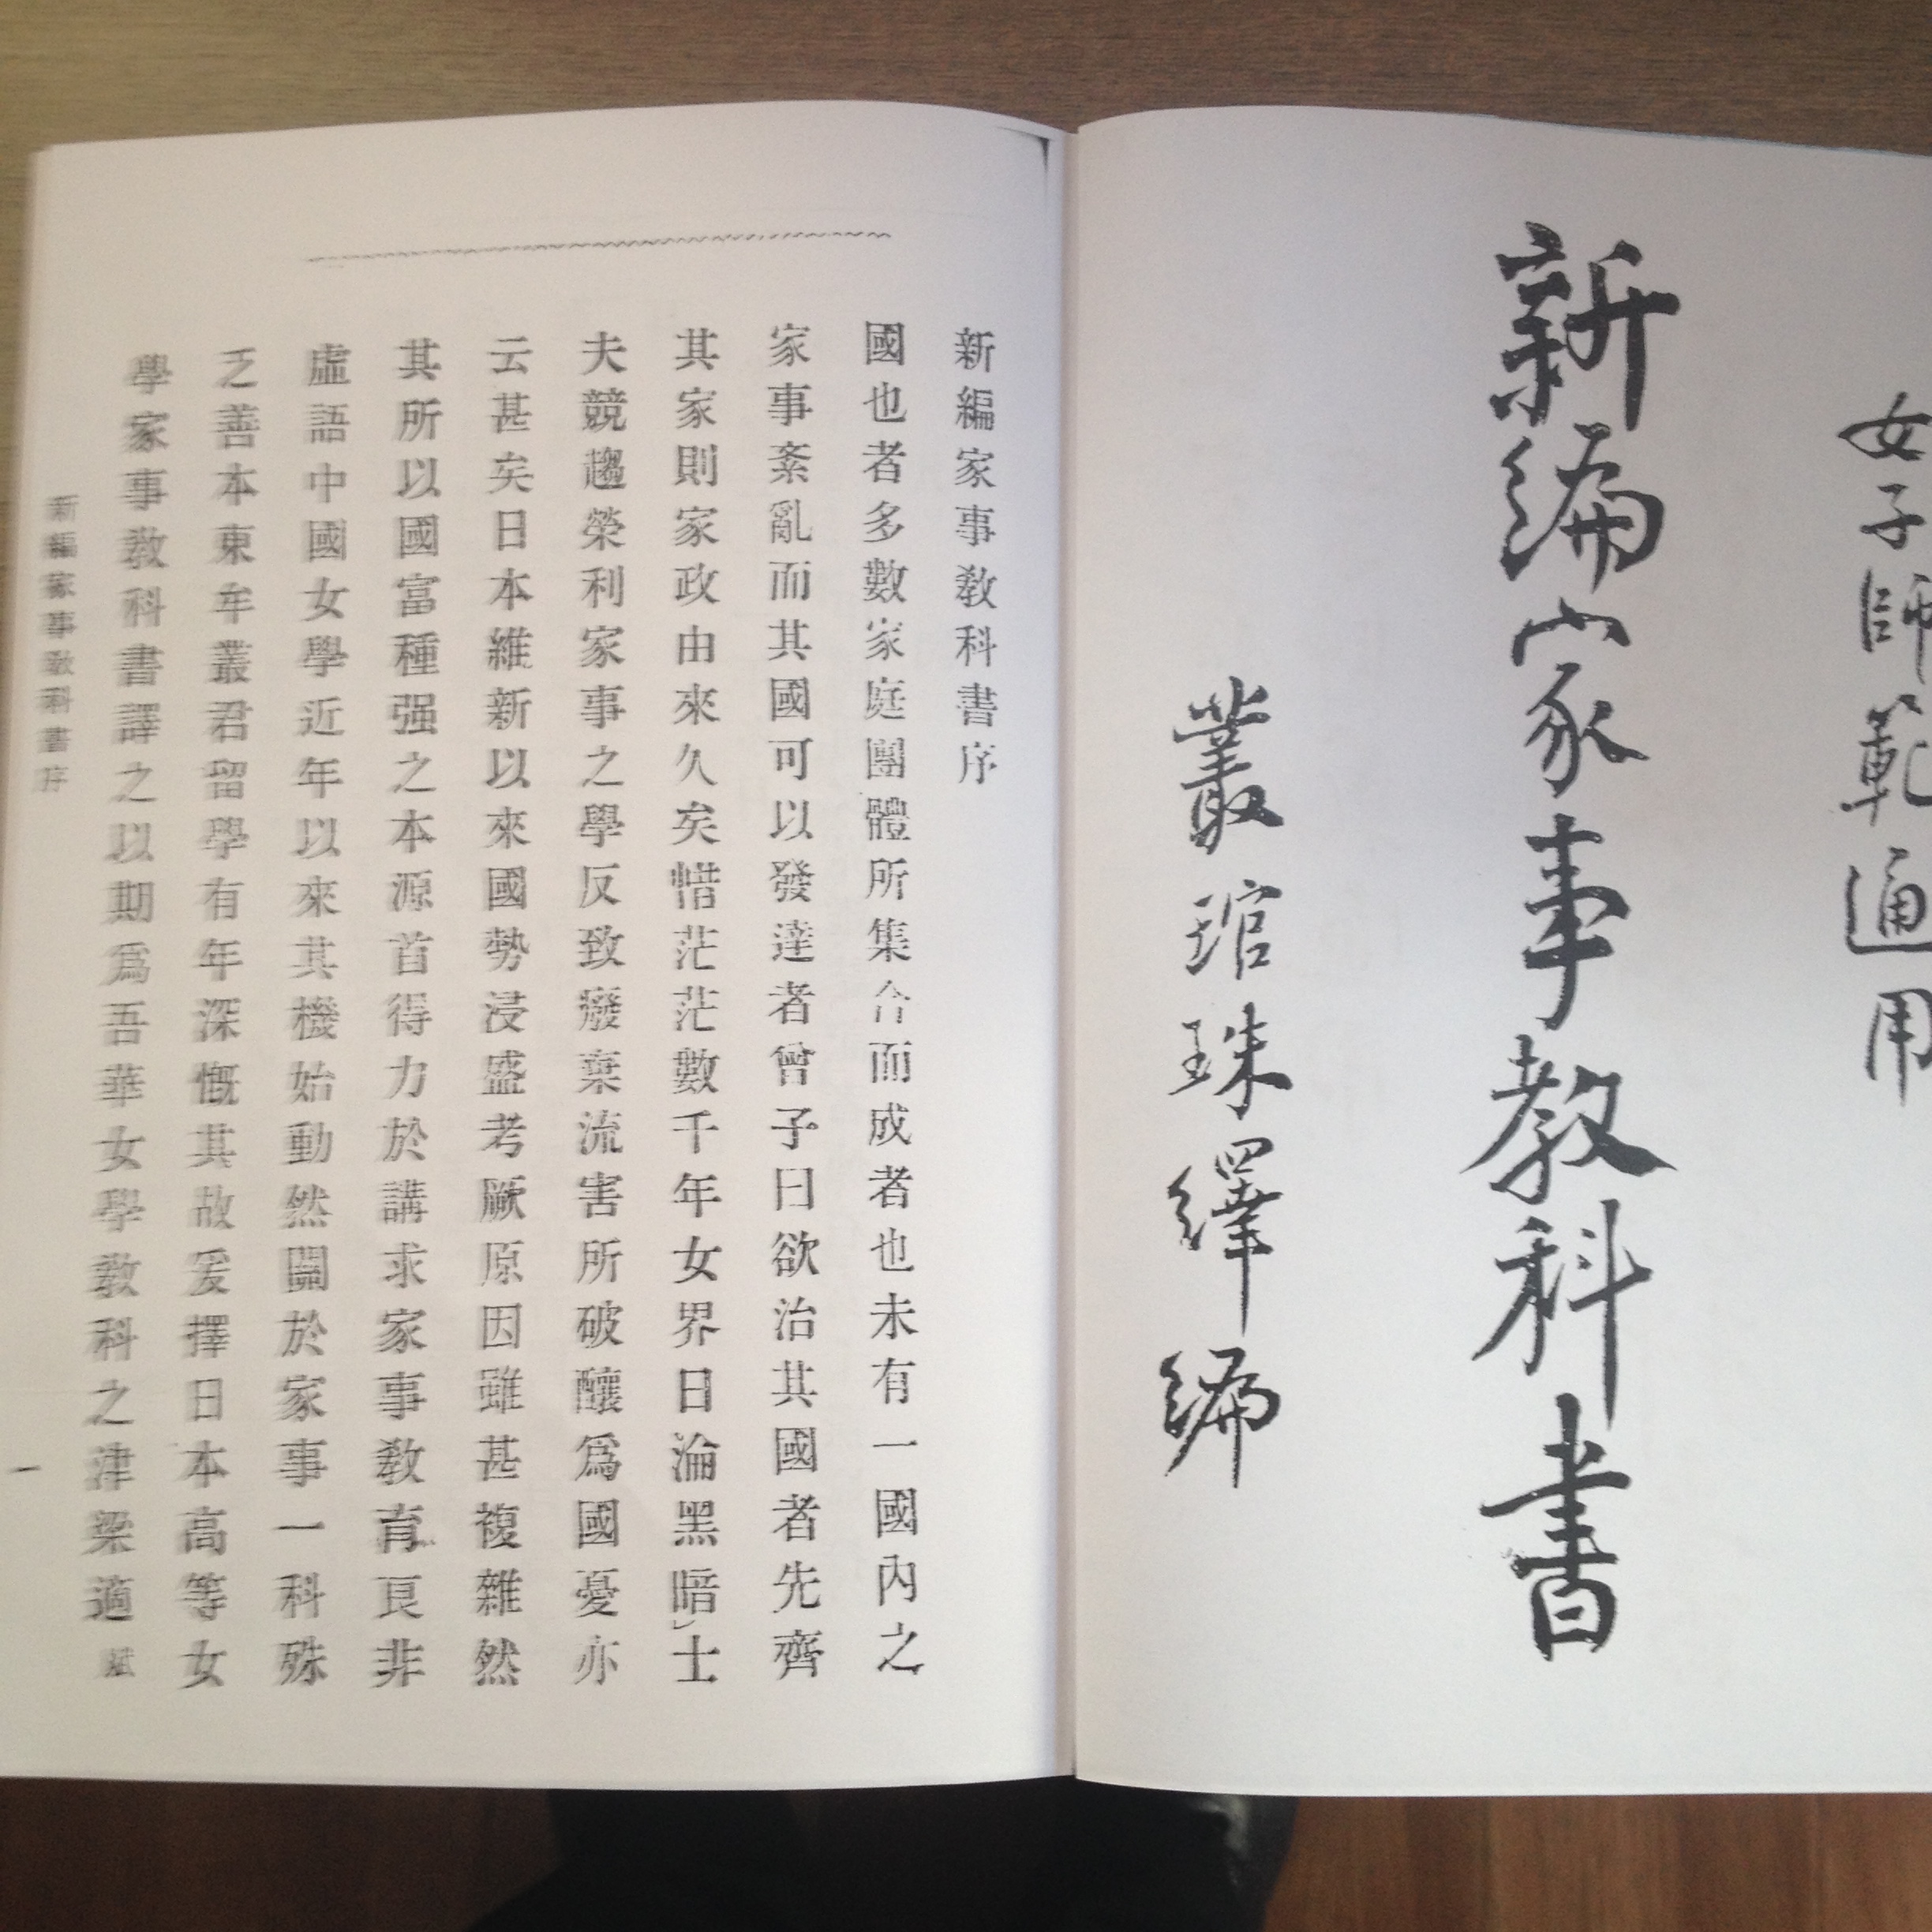 女子師範適用
新編家事教科書
叢琯珠繹編
新編家事教科書序
國也者多數家庭團體所集合而成者也未有一國內之
家事紊亂而其國可以發達者曾子曰欲治其國者先齊
其家則家政由來久矣惜茫茫數千年女界日淪黑暗士
夫競趨榮利家事之學反致癈棄流害所破釀爲國憂亦
云甚矣日本維新以來國勢浸盛考厥原因雖甚複雜然
其所以國富種强之本源首得力於講求家事教育良非
虛語中國女學近年以來其機始動然關於家事一科殊
乏善本東牟叢君留學有年深慨其故爰擇日本高等女
學家事教科書譯之以期爲吾華女學教科之津梁適斌
新編家事教科書序
一